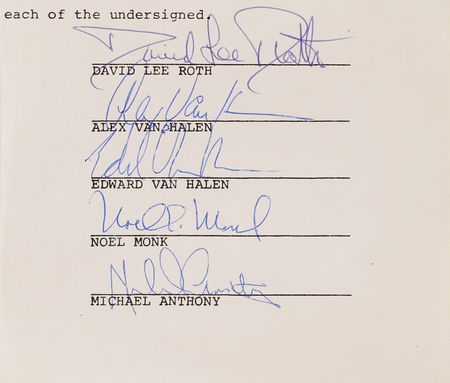 each of the undersigned.
David Lee Roth
DAVID LEE ROTH
Alex Van H
ALEX VAN HALEN
Ed Van H
EDWARD VAN HALEN
Noel E. Monk
NOEL MONK
Michael Anthony
MICHAEL ANTHONY